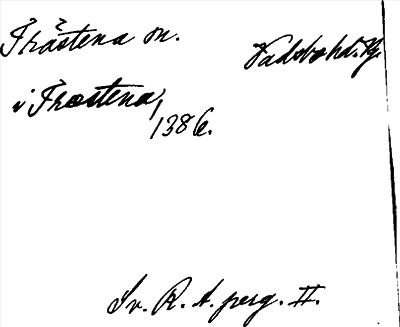 Frästena sn. Vadsbo hd. Vg.
i Fræstena,
1386.
Sv. R. A. perg. II.